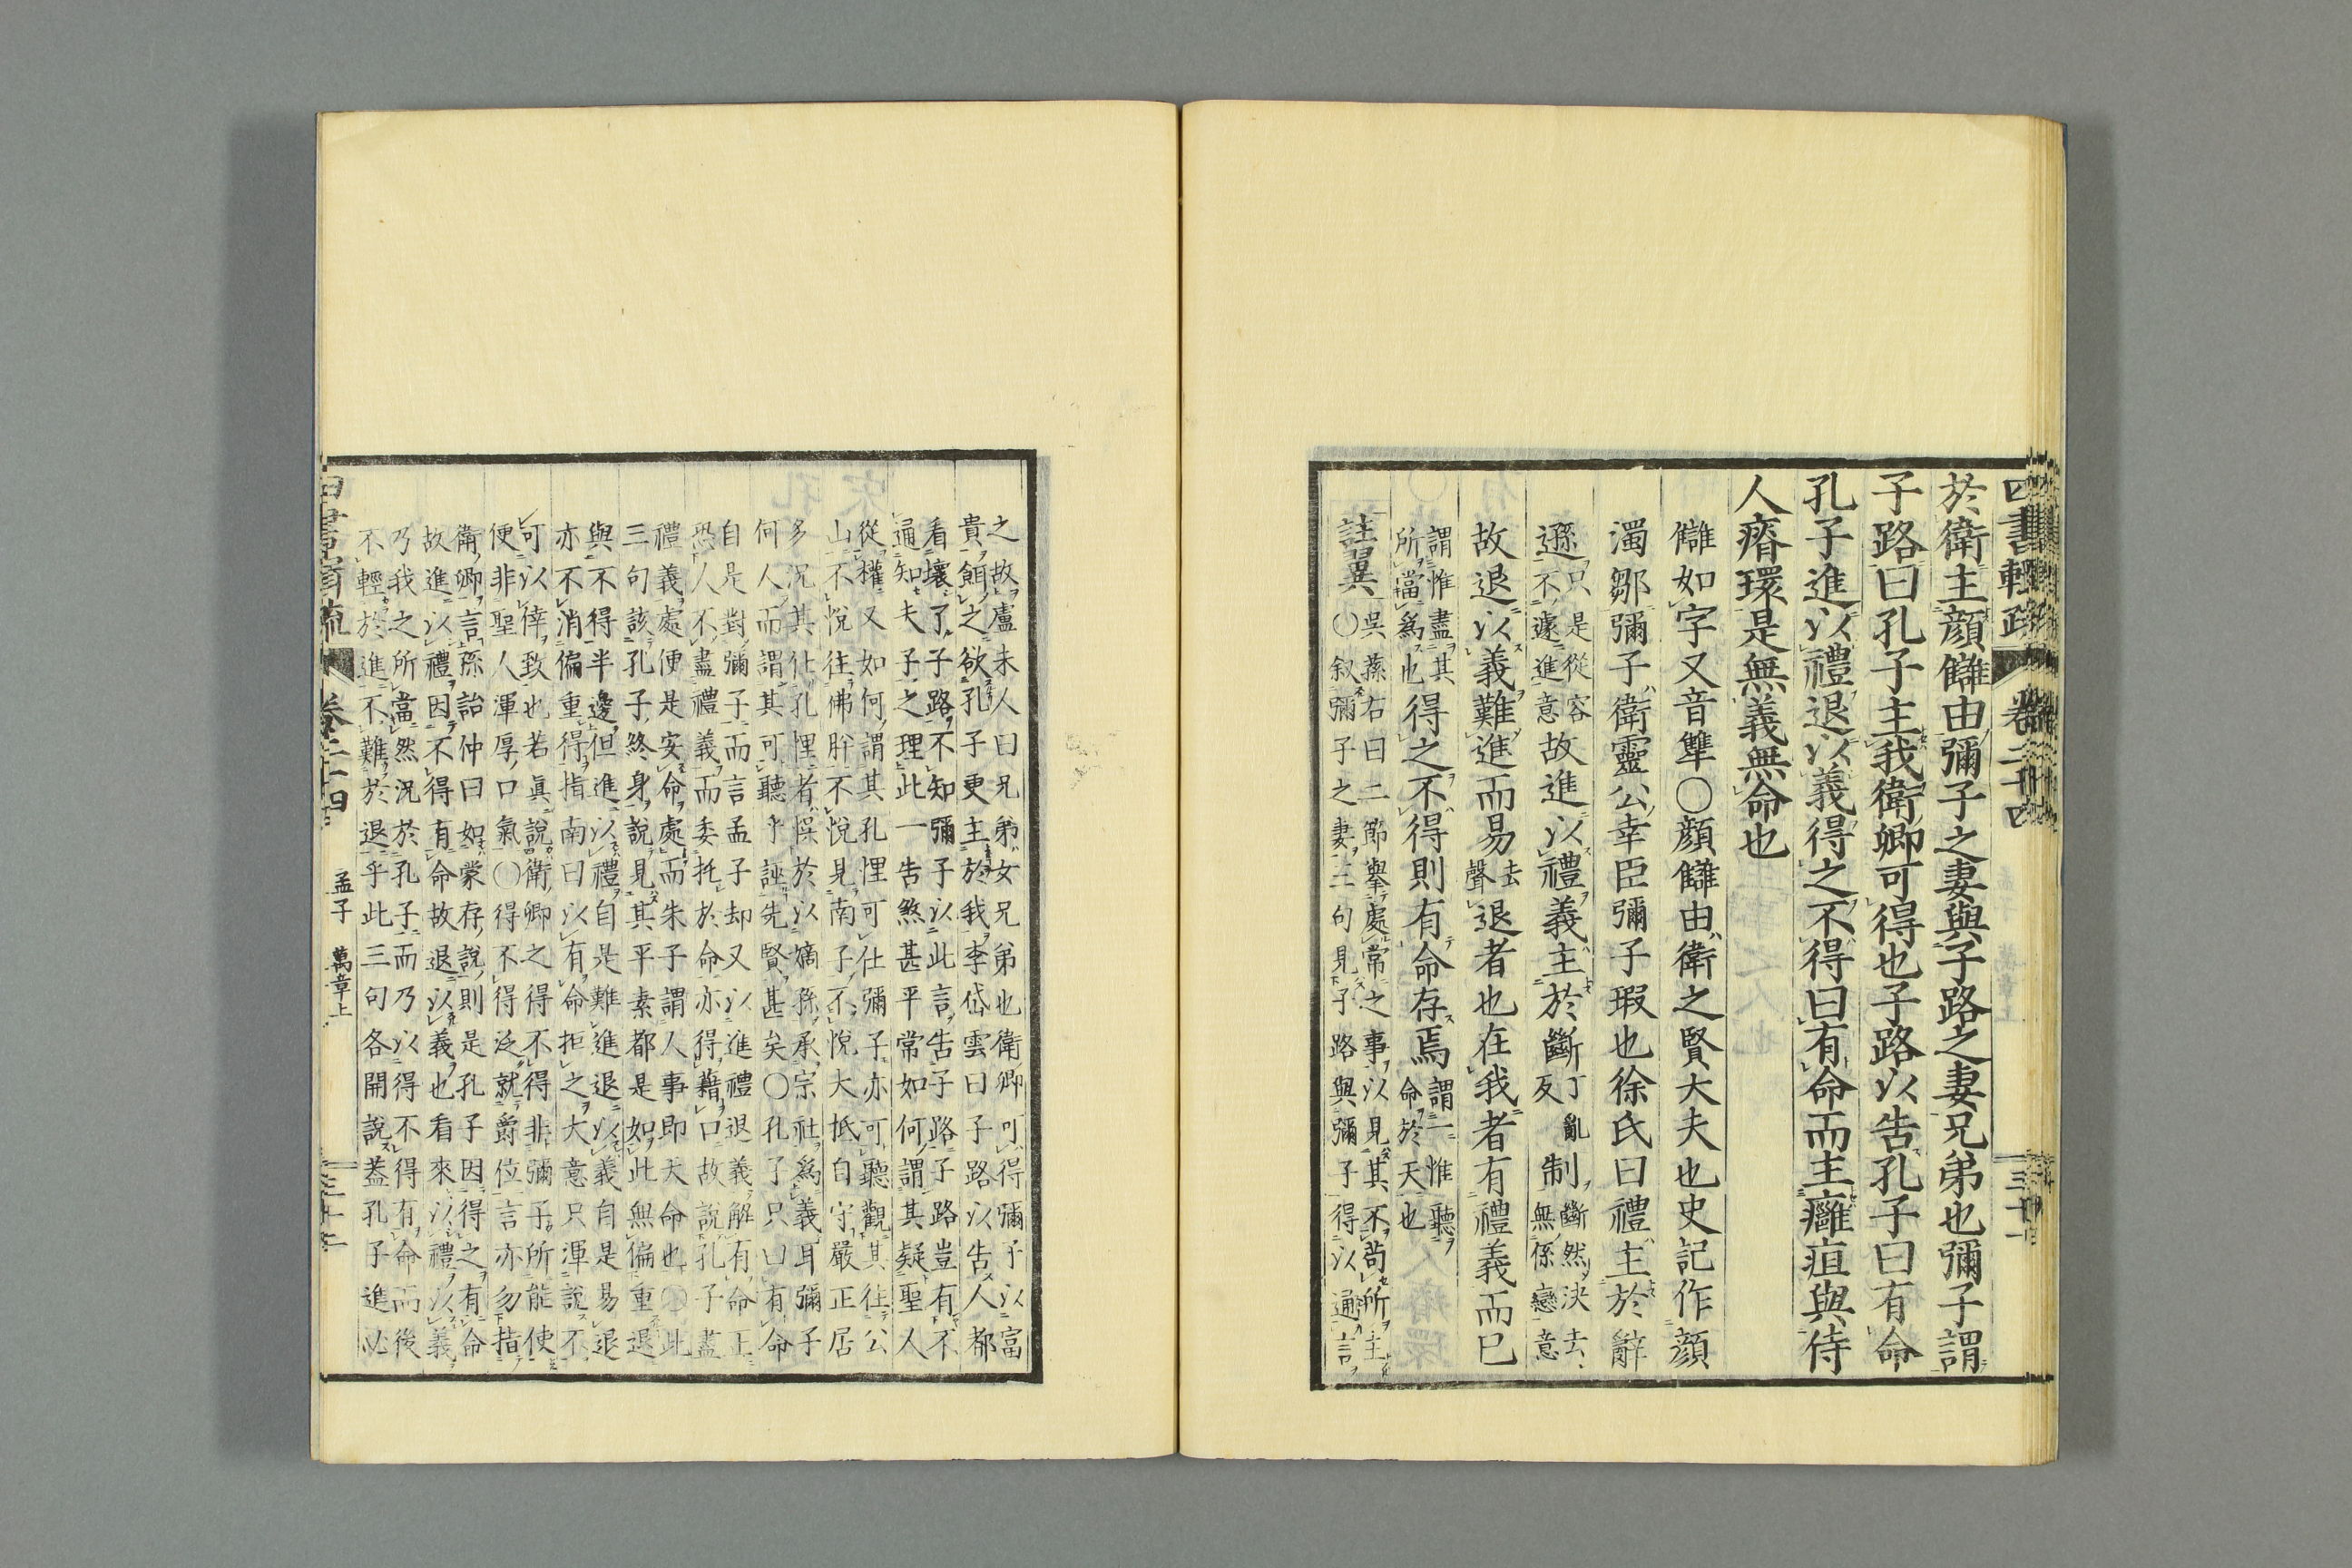 四書輯疏 卷二十四 三十一
於衛主顏讎由彌子之妻與子路之妻兄弟也彌子謂
子路曰孔子主我衛卿可得也子路以告孔子曰有命
孔子進以禮退以義得之不得曰有命而主癰疽與侍
人瘠環是無義無命也
讎如字又音犨○顏讎由衛之賢大夫也史記作顏
濁鄒彌子衛靈公幸臣彌子瑕也徐氏曰禮主於辭
遜只是從容不遽進意故進以禮義主於斷丁亂反制斷然決去無係戀意
故退以義難進而易去聲退者也在我者有禮義而已
謂惟盡其所當爲也得之不得則有命存焉謂一惟聽命於天也
註翼○吳蓀右曰二節擧處常之事以見其不苟所主
叙彌子之妻三句見下子路與彌子得以通言
之故盧未人曰兄弟女兄弟也衛卿可得彌子以富
貴餌之欲孔子更主於我李岱雲曰子路以告人都
看壞了子路不知彌子以此言告子路子路豈有不
通知夫子之理此一告煞甚平常如何謂其疑聖人
從權又如何謂其孔悝可仕彌子亦可聽觀其往公
山不悅往佛肸不悅見南子不悅大抵自守嚴正居
多況其仕孔悝者悞於以嫡孫承宗社爲義耳彌子
何人而謂其可聽乎誣先賢甚矣○孔子只曰有命
自是對彌子而言孟子却又以進禮退義解有命正
恐人不盡禮義而委托於命亦得藉口故說孔子盡
禮義處便是安命處而朱子謂人事即天命也○此
三句該孔子終身說見其平素都是如此無偏重退
與不得半邊但進以禮自是難進退以義自是易退
亦不消偏重得指南曰以有命拒之大意只渾說不
可以倖致也若眞說衛卿之得不得非彌子所能使
便非聖人渾厚口氣○得不得泛就爵位言亦勿指
衛卿言孫詒仲曰如蒙存說則是孔子因得之有命
故進以禮因不得有命故退以義也看來以禮以義
乃我之所當然況於孔子而乃以得不得有命而後
不輕於進不難於退乎此三句各開說葢孔子進必
四書輯疏 卷二十四 孟子 萬章上 三十二